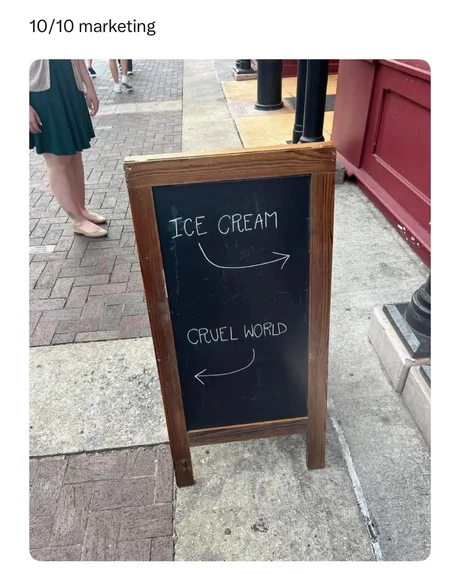 10/10 marketing
ICE CREAM
CRUEL WORLD